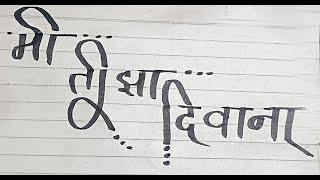 मी
तुझा
दिवाना